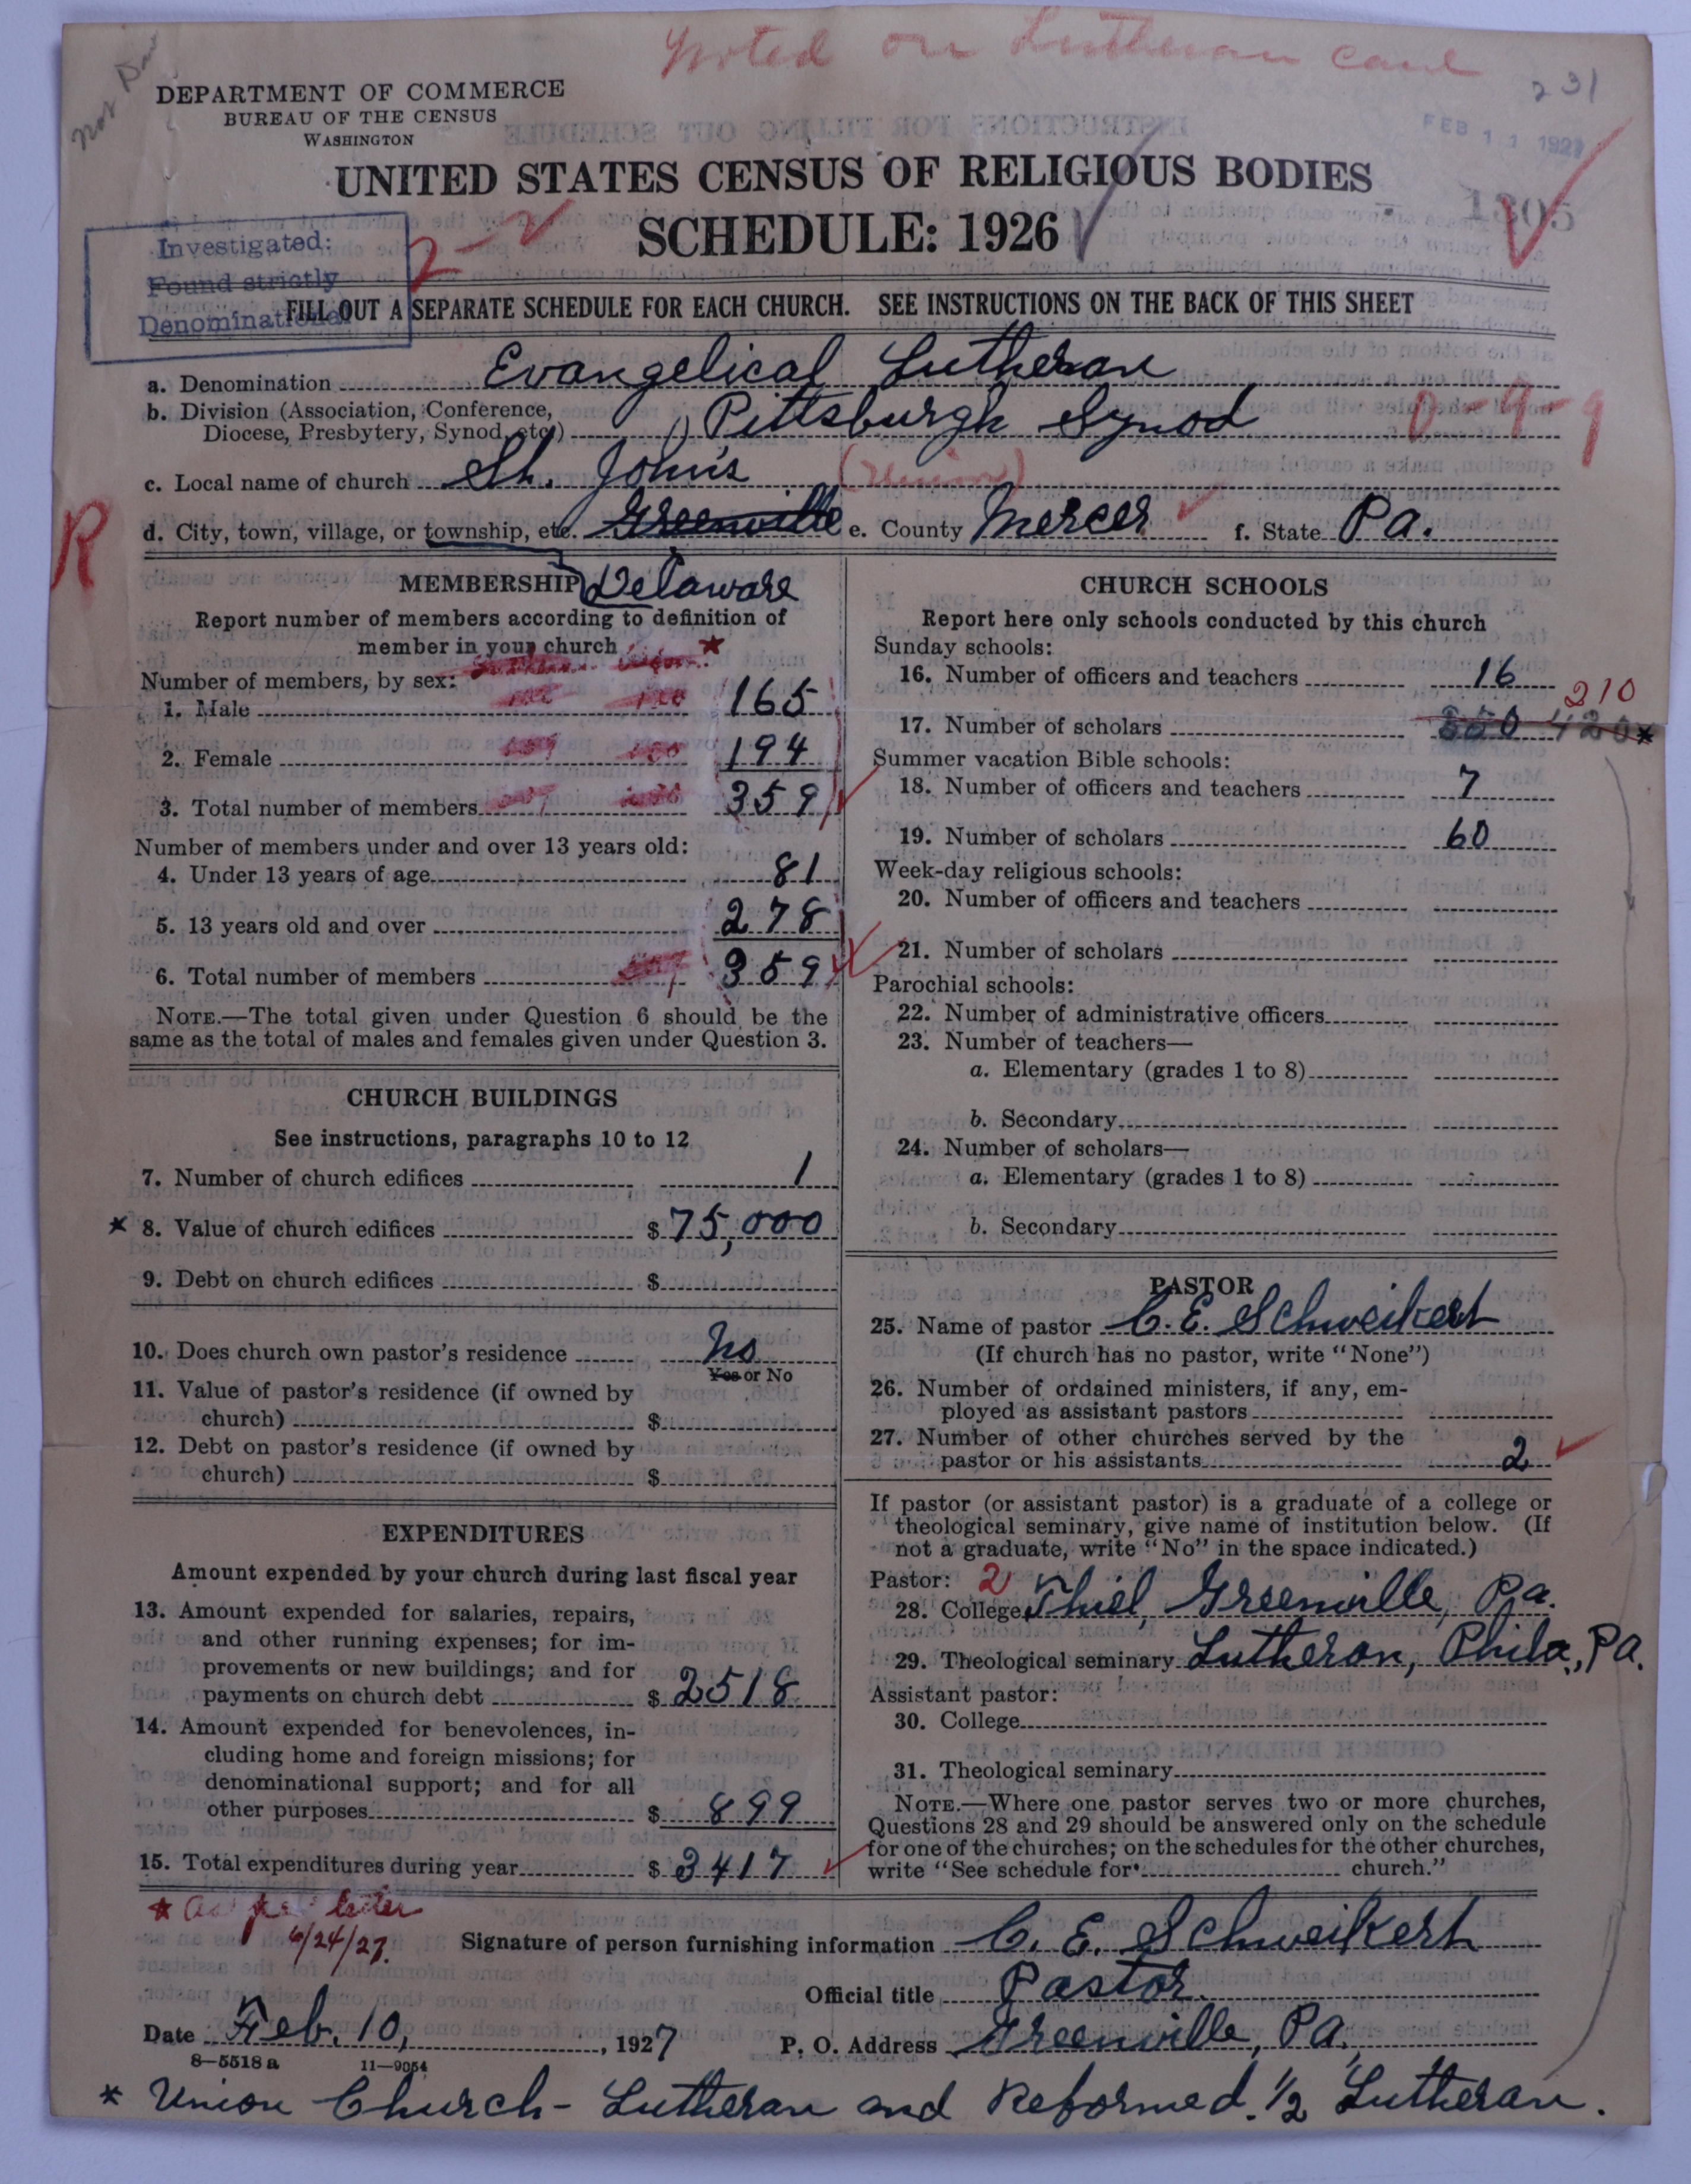 noted on Lutheran card
231
Not
DEPARTMENT OF COMMERCE
BUREAU OF THE CENSUS
WASHINGTON
FEB 11 1927
UNITED STATES CENSUS OF RELIGIOUS BODIES
1305
SCHEDULE: 1926
Investigated:
Found strictly
Denominational
2-2
FILL OUT A SEPARATE SCHEDULE FOR EACH CHURCH. SEE INSTRUCTIONS ON THE BACK OF THIS SHEET
a. Denomination Evangelical Lutheran
b. Division (Association, Conference,
Diocese, Presbytery, Synod, etc.) Pittsburgh Synod
0-9-9
c. Local name of church St. John's (Union)
R
d. City, town, village, or township, etc. Greenville e. County Mercer f. State Pa.
MEMBERSHIP Delaware
Report number of members according to definition of
member in your church
Number of members, by sex:
1. Male 165
2. Female 194
3. Total number of members 359
Number of members under and over 13 years old:
4. Under 13 years of age 81
5. 13 years old and over 278
6. Total number of members 359
NOTE.—The total given under Question 6 should be the
same as the total of males and females given under Question 3.
CHURCH BUILDINGS
See instructions, paragraphs 10 to 12
7. Number of church edifices 1
* 8. Value of church edifices $ 75,000
9. Debt on church edifices $
10. Does church own pastor's residence No
Yes or No
11. Value of pastor's residence (if owned by
church) $
12. Debt on pastor's residence (if owned by
church) $
EXPENDITURES
Amount expended by your church during last fiscal year
13. Amount expended for salaries, repairs,
and other running expenses; for im-
provements or new buildings; and for
payments on church debt $ 2518
14. Amount expended for benevolences, in-
cluding home and foreign missions; for
denominational support; and for all
other purposes $ 899
15. Total expenditures during year $ 3417
CHURCH SCHOOLS
Report here only schools conducted by this church
Sunday schools:
16. Number of officers and teachers 16
210
17. Number of scholars 420*
Summer vacation Bible schools:
18. Number of officers and teachers 7
19. Number of scholars 60
Week-day religious schools:
20. Number of officers and teachers
21. Number of scholars
Parochial schools:
22. Number of administrative officers
23. Number of teachers—
a. Elementary (grades 1 to 8)
b. Secondary
24. Number of scholars—
a. Elementary (grades 1 to 8)
b. Secondary
PASTOR
25. Name of pastor C. E. Schweikert
(If church has no pastor, write "None")
26. Number of ordained ministers, if any, em-
ployed as assistant pastors
27. Number of other churches served by the
pastor or his assistants 2
If pastor (or assistant pastor) is a graduate of a college or
theological seminary, give name of institution below. (If
not a graduate, write "No" in the space indicated.)
Pastor: 2
28. College Thiel, Greenville, Pa.
29. Theological seminary Lutheran, Phila., Pa.
Assistant pastor:
30. College
31. Theological seminary
NOTE.—Where one pastor serves two or more churches,
Questions 28 and 29 should be answered only on the schedule
for one of the churches; on the schedules for the other churches,
write "See schedule for church."
* As per letter
6/24/27.
Signature of person furnishing information C. E. Schweikert
Official title Pastor.
Date Feb. 10, 1927 P. O. Address Greenville, Pa.
8—5518 a 11—9054
* Union Church - Lutheran and Reformed. 1/2 Lutheran.